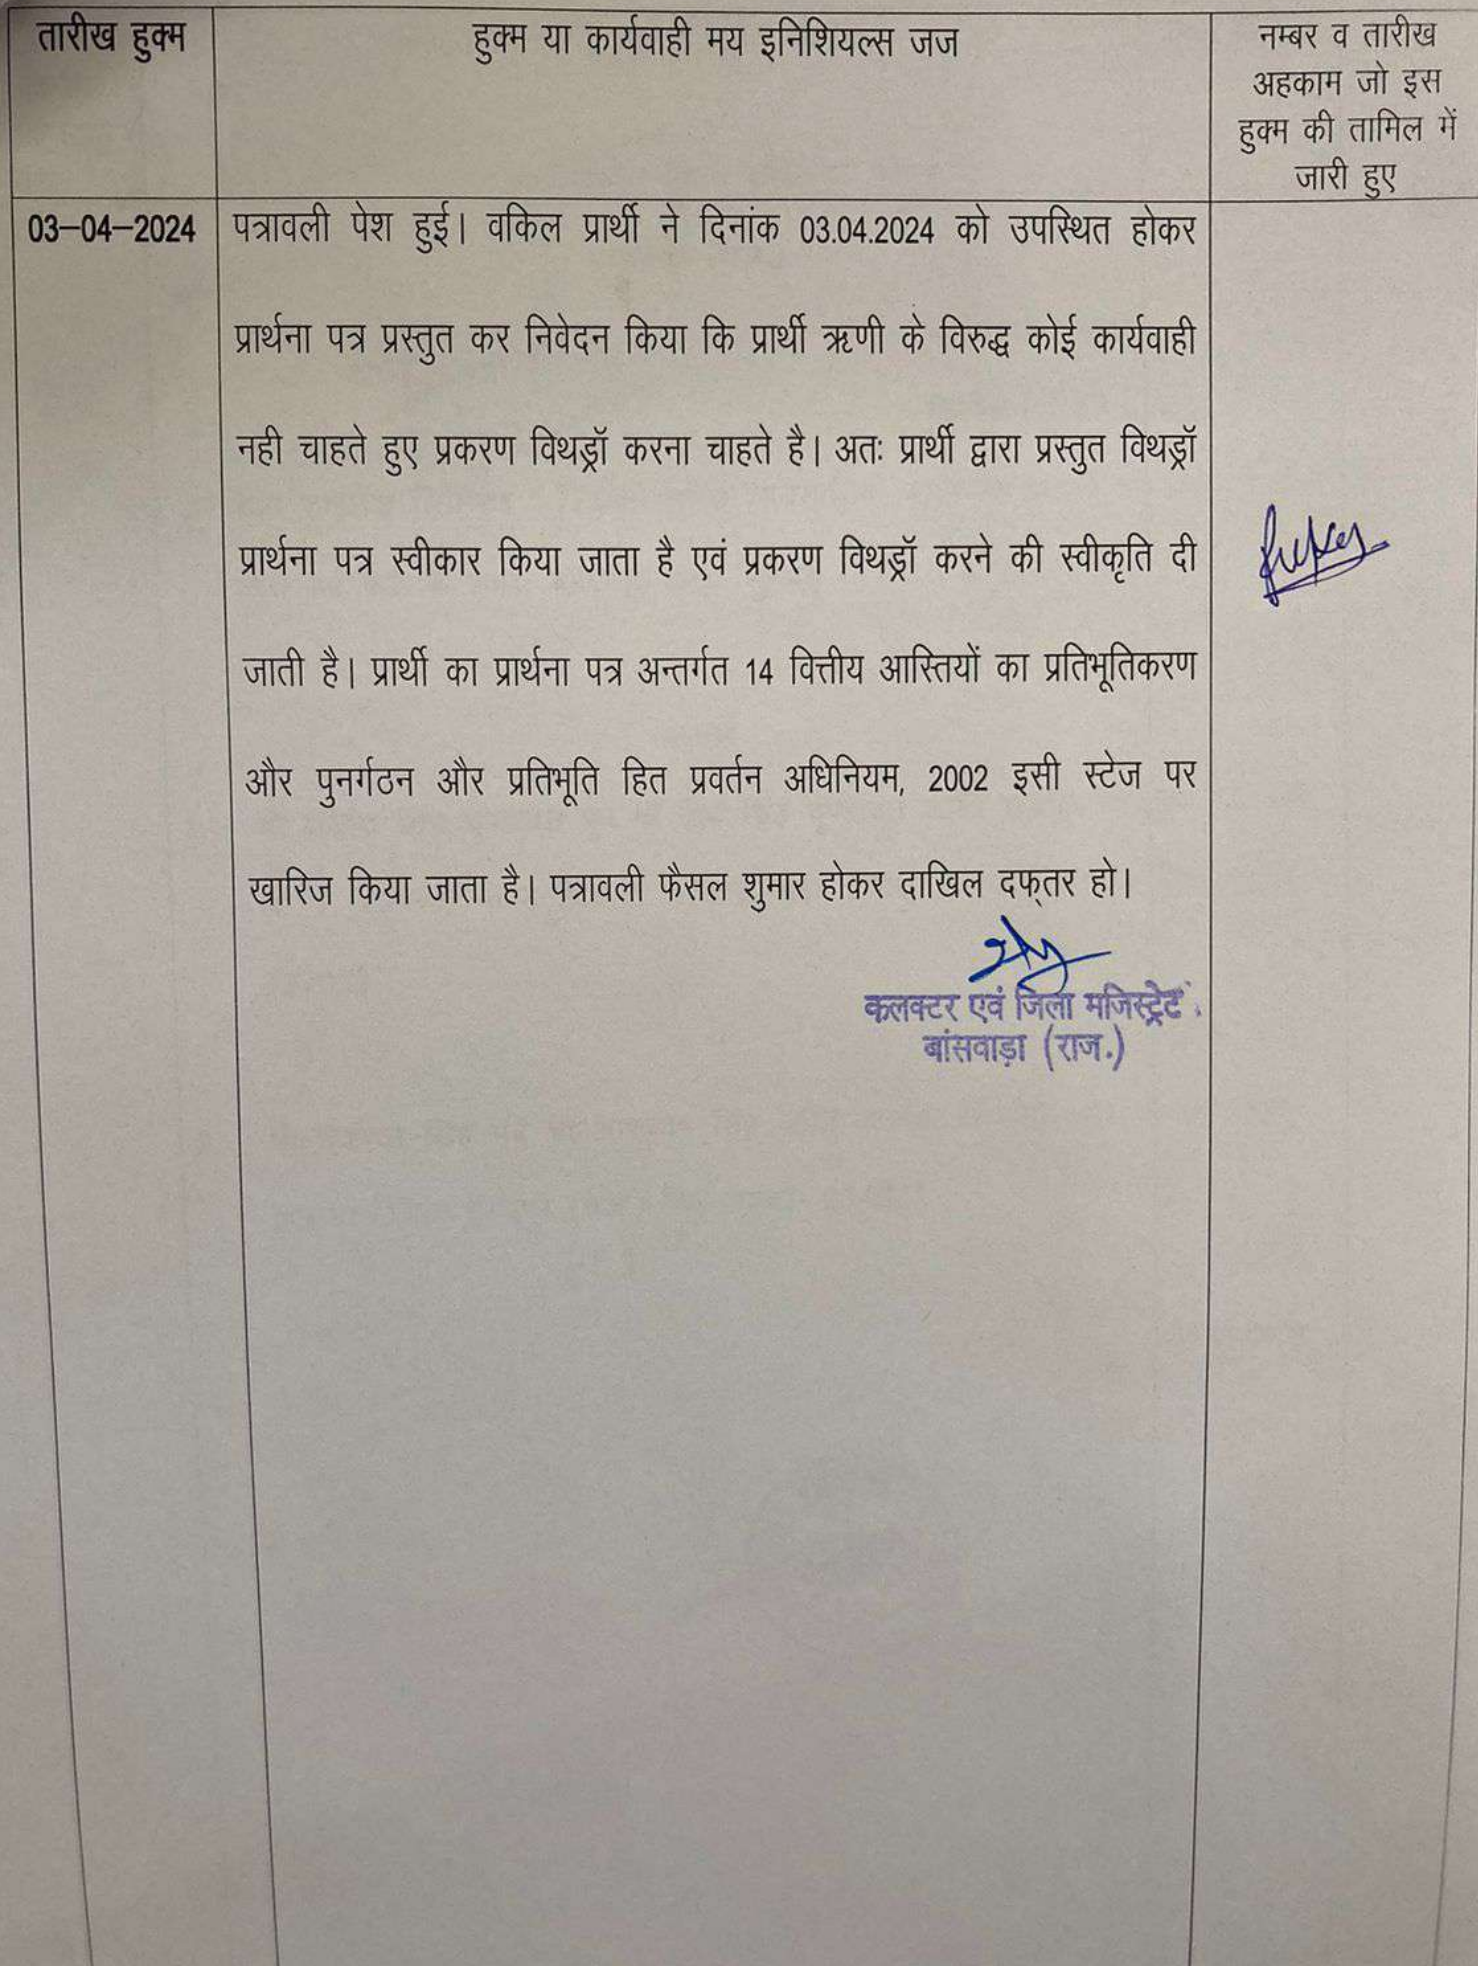 तारीख हुक्म
हुक्म या कार्यवाही मय इनिशियल्स जज
नम्बर व तारीख
अहकाम जो इस
हुक्म की तामिल में
जारी हुए
03–04–2024
पत्रावली पेश हुई। वकिल प्रार्थी ने दिनांक 03.04.2024 को उपस्थित होकर
प्रार्थना पत्र प्रस्तुत कर निवेदन किया कि प्रार्थी ऋणी के विरुद्ध कोई कार्यवाही
नही चाहते हुए प्रकरण विथड्रॉ करना चाहते है। अतः प्रार्थी द्वारा प्रस्तुत विथड्रॉ
प्रार्थना पत्र स्वीकार किया जाता है एवं प्रकरण विथड्रॉ करने की स्वीकृति दी
जाती है। प्रार्थी का प्रार्थना पत्र अन्तर्गत 14 वित्तीय आस्तियों का प्रतिभूतिकरण
और पुनर्गठन और प्रतिभूति हित प्रवर्तन अधिनियम, 2002 इसी स्टेज पर
खारिज किया जाता है। पत्रावली फैसल शुमार होकर दाखिल दफ्तर हो।
कलक्टर एवं जिला मजिस्ट्रेट
बांसवाड़ा (राज.)